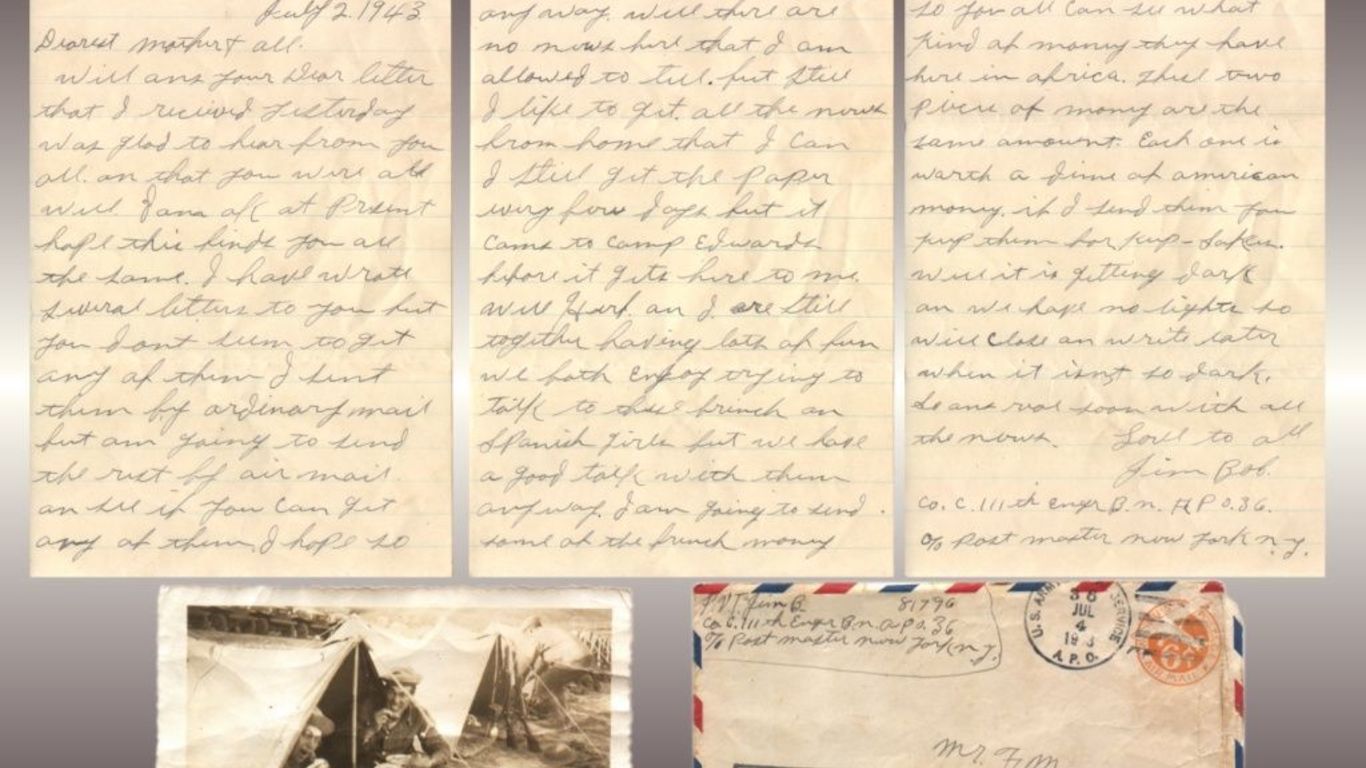 July 2. 1943
Dearest mother & all.
will ans your Dear letter
that I recieved yesterday
was glad to hear from you
all. an that you were all
well. I am ok at Present
hope this finds you all
the same. I have wrote
several letters to you but
you dont seem to get
any of them I sent
them by ordinary mail
but am going to send
the rest by air mail
an see if you can get
any of them, I hope so
any way. well there are
no news here that I am
allowed to tell. but still
I like to get all the news
from home that I can
I still get the Paper
every few days but it
cams to camp Edwards
before it gets here to me.
well an I are still
together having lots of fun
we both Enjoy trying to
talk to these french an
Spanish girls but we have
a good talk with them
anyway. I am going to send
some of the french money
so you all can see what
kind of money they have
here in africa. these two
Piece of money are the
same amount. Each one is
warth a dime of american
money. if I send them you
keep them for keep-sakes.
well it is getting dark
an we have no lights so
will close an write later
when it isnt so dark.
so ans real soon with all
the news. Love to all
Jim Bob.
Co. C. 111th Engr B.n. A P O. 36.
c/o Post master new york n.y.
P.V.T. Jim B. 81796
Co C. 111th Engr B.n. a p o. 36
c/o Post master new york n.y.
U.S. ARMY SERVICE
36
JUL
4
A.P.O.
6c
AIR MAIL
Mr. F.M.